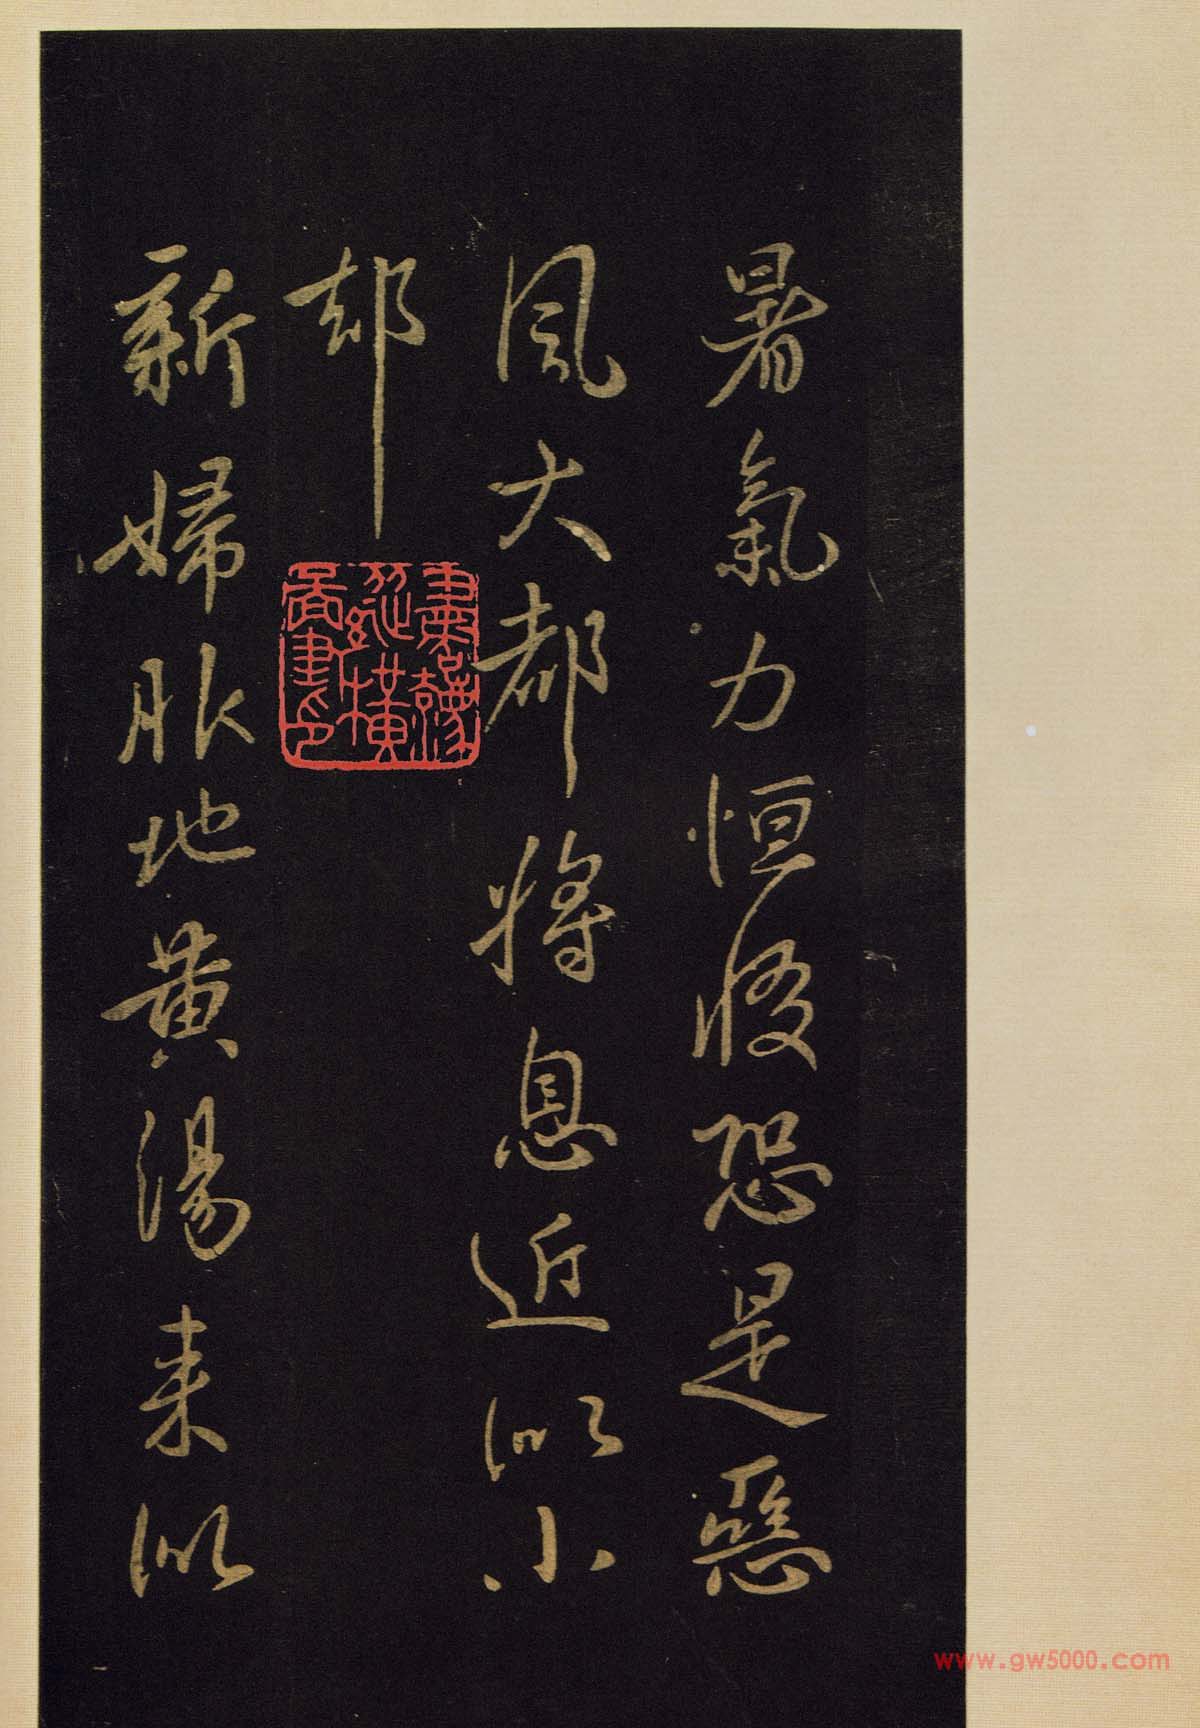 暑氣力恒惙恐是惡
風大都將息近似小
却
新婦服地黃湯來似
www.gw5000.com